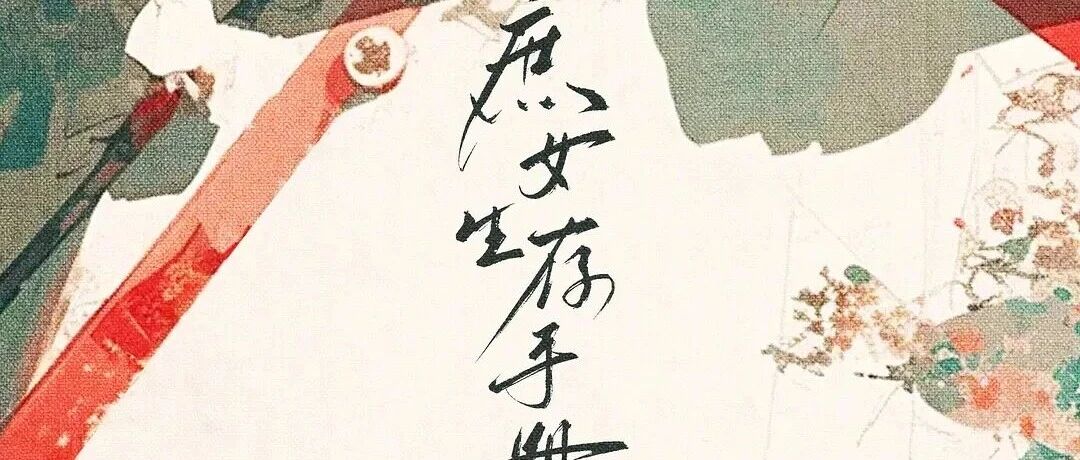 庶女生存手册